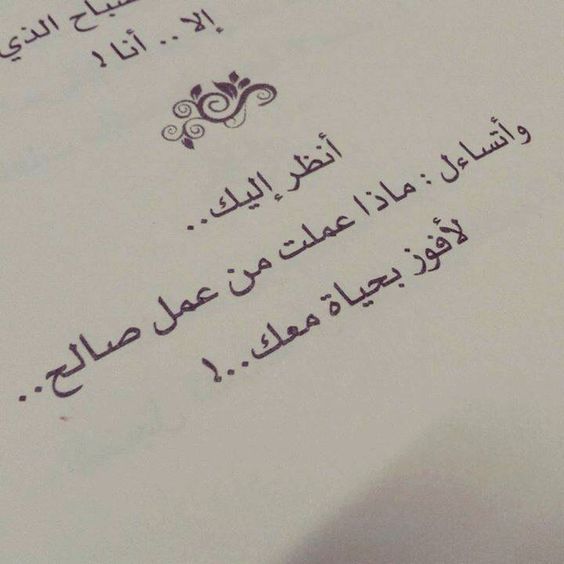 الذي
إلا.. أنا!
أنظر إليك..
وأتساءل : ماذا عملت من عمل صالح..
لأفوز بحياة معك..!